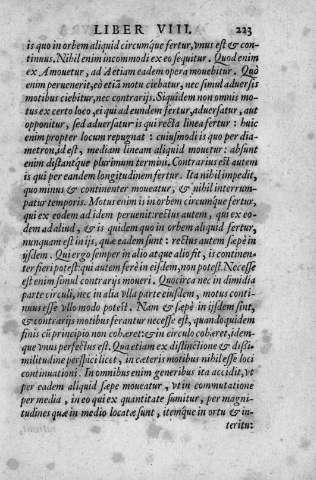 LIBER VIII. 223
is quo in orbem aliquid circumq́ue fertur, vnus est & con-
tinuus. Nihil enim incommodi ex eo sequitur. Quod enim
ex A mouetur, ad A etiam eadem opera mouebitur. Quò
enim peruenerit, eò etiã motu ciebatur, nec simul aduersis
motibus ciebitur, nec contrarijs. Siquidem non omnis mo-
tus ex certo loco, ei qui ad eundem fertur, aduersatur, aut
opponitur, sed aduersatur is qui recta linea fertur: huic
enim propter locum repugnat: cuiusmodi is quo per dia-
metron, id est, mediam lineam aliquid mouetur: absunt
enim distantq́ue plurimum termini. Contrarius est autem
is qui per eandem longitudinem fertur. Ita nihil impedit,
quo minus & continenter moueatur, & nihil interrum-
patur temporis. Motus enim is in orbem circumq́ue fertur,
qui ex eodem ad idem peruenit: rectus autem, qui ex eo-
dem ad aliud, & is quidem quo in orbem aliquid fertur,
nunquam est in ijs, quæ eadem sunt: rectus autem sæpè in
ijsdem. Qui ergo semper in alio atque alio fit, is continen-
ter fieri potest: qui autem ferè in eisdem, non potest. Necesse
est enim simul contrarijs moueri. Quocirca nec in dimidia
parte circuli, nec in alia vlla parte eiusdem, motus conti-
nuus esse vllo modo potest. Nam & sæpè in ijsdem sint,
& contrarijs motibus ferantur necesse est, quandoquidem
finis cũ principio non cohæret: & in circulo cohæret, idem-
que vnus perfectus est. Qua etiam ex distinctione & dissi-
militudine perspici licet, in cæteris motibus nihil esse loci
continuationi. In omnibus enim generibus ita accidit, vt
per eadem aliquid sæpe moueatur, vt in commutatione
per media, in eo qui ex quantitate sumitur, per magni-
tudines quæ in medio locatæ sunt, itemq́ue in ortu & in-
teritu: